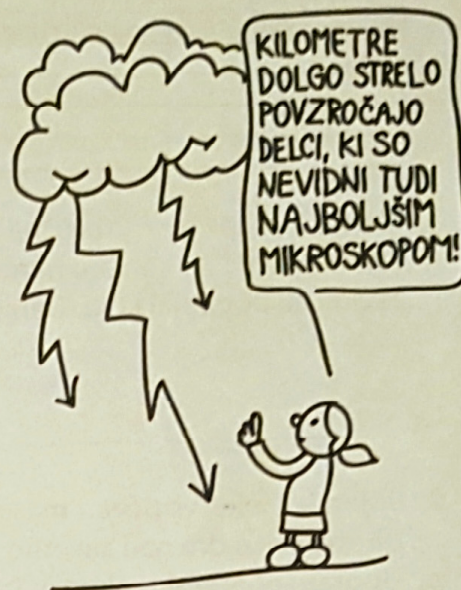 KILOMETRE
DOLGO STRELO
POVZROČAJO
DELCI, KI SO
NEVIDNI TUDI
NAJBOLJŠIM
MIKROSKOPOM!